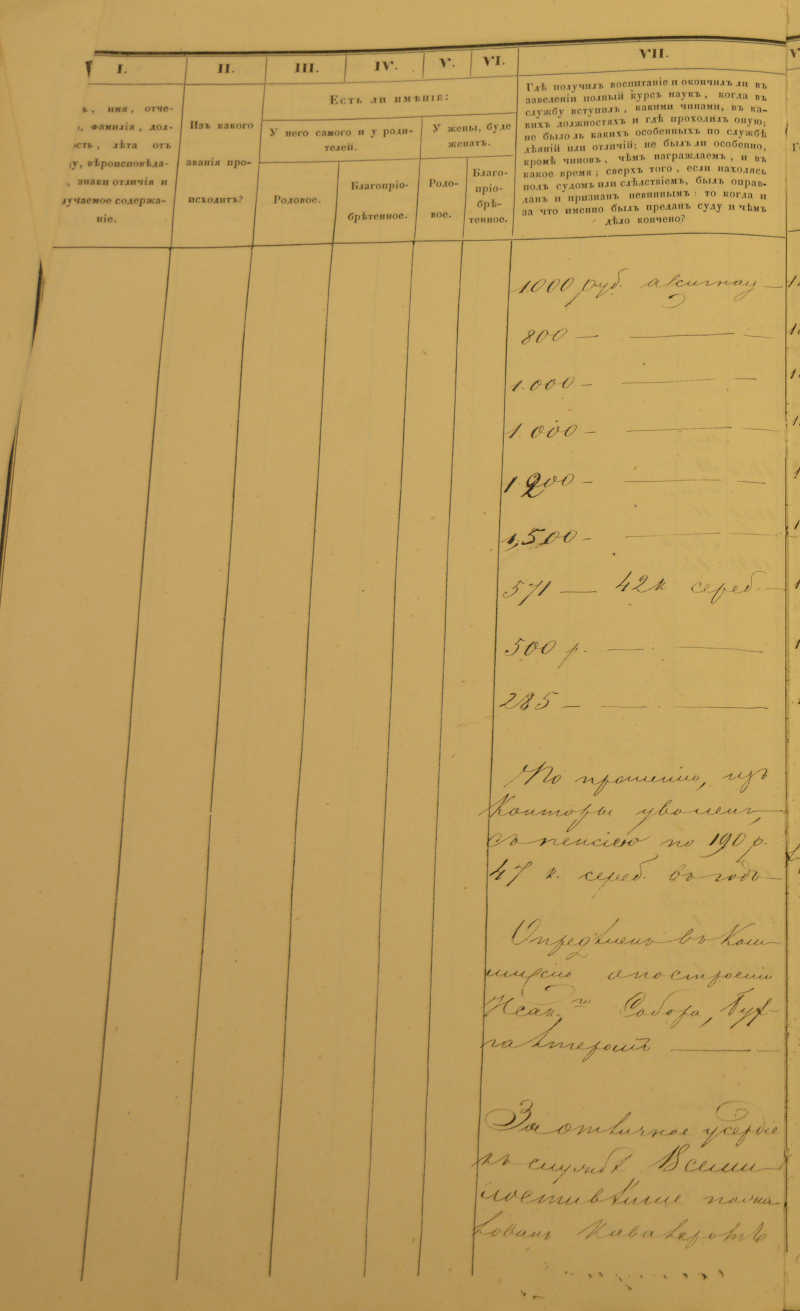 I.
II.
III.
IV.
V.
VI.
VII.
ъ, имя, отче-
, Фамилія, дол-
сть, лѣта отъ
у, вѣроисповѣда-
, знаки отличія и
лучаемое содержа-
ніе.
Изъ какого
званія про-
исходитъ?
Есть ли имѣніе:
У него самого и у роди-
телей.
У жены, буде
женатъ.
Родовое.
Благопріо-
брѣтенное.
Родо-
вое.
Благо-
пріо-
брѣ-
тенное.
Гдѣ получилъ воспитаніе и окончилъ ли въ
заведеніи полный курсъ наукъ, когда въ
службу вступилъ, какими чинами, въ ка-
кихъ должностяхъ и гдѣ проходилъ оную;
не было ль какихъ особенныхъ по службѣ
дѣяній или отличій; не былъ ли особенно,
кромѣ чиновъ, чѣмъ награждаемъ, и въ
какое время; сверхъ того, если находясь
подъ судомъ или слѣдствіемъ, былъ оправ-
данъ и признанъ невиннымъ: то когда и
за что именно былъ преданъ суду и чѣмъ
дѣло кончено?
1000 руб. ассигнац —
800 — —
1.000 — —
1000 — —
1200 — —
1,500 — —
571 — 42 к сереб —
500 р. — —
285 — — —
По прошенію, изъ
Конторы уволенъ
съ пенсіею по 190 р.
47 к. сереб. въ годъ —
Опредѣленъ въ Ком-
мисію о построеніи
Исак. Собора, Бух-
галтеромъ —
За отличное усердіе
къ службѣ Всеми-
лостивѣйше пожа-
лованъ Кавалеромъ